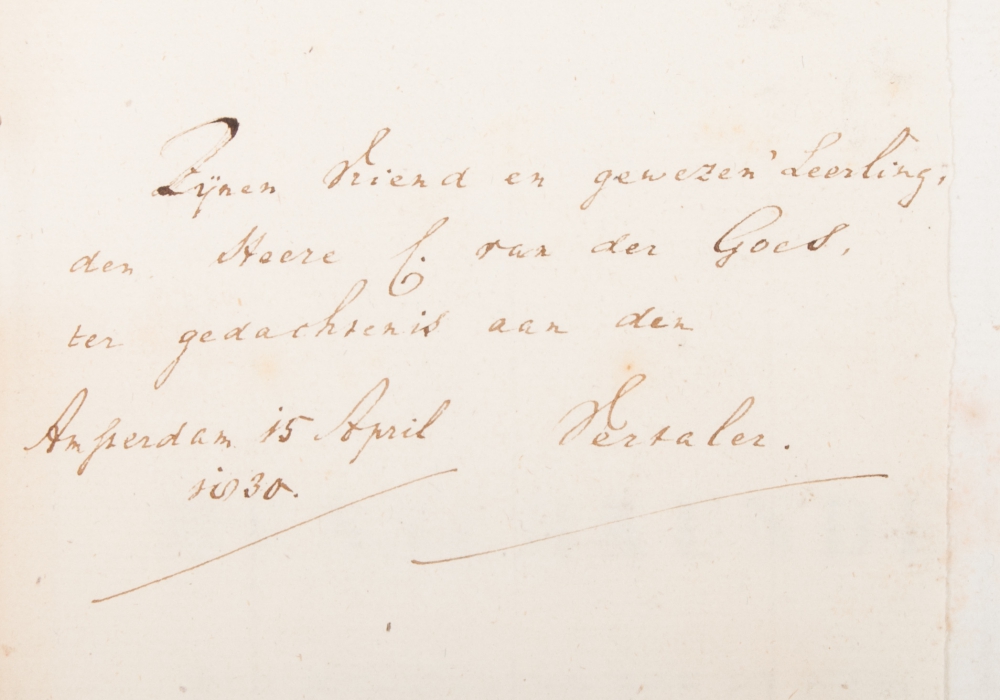 Zijnen Vriend en gewezen Leerling,
den Heere C. van der Goes,
ter gedachtenis aan den
Amsterdam 15 April Vertaler.
1830.